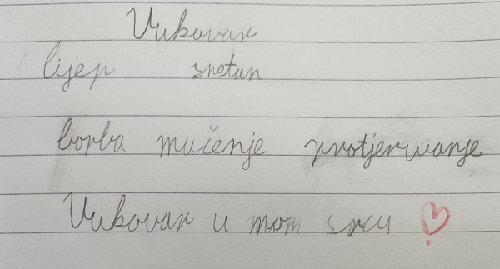 Vukovar
lijep sretan
borba mučenje protjerivanje
Vukovar u mom srcu